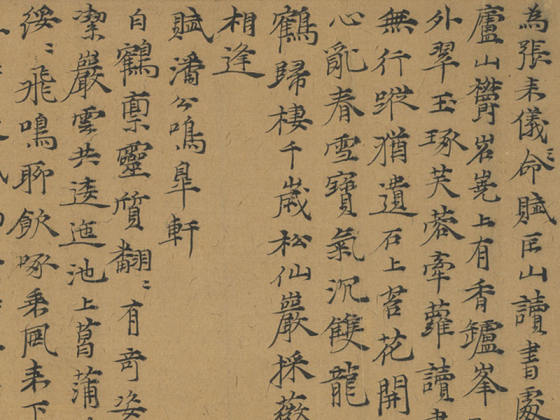 為張来儀命賦匡山讀書處
廬山欝岧嶤上有香罏峯
外翠玉琢芙蓉牽蘿讀書
無行蹤猶遺石上苔花開
心亂春雪寶氣沉雙龍
鶴歸棲千歲松仙巖採薇
相逢
賦潘公鳴皐軒
白鶴稟靈質翻〻有奇姿
潔巖雲共逶迤池上菖蒲
綏〻飛鳴聊飲啄乗風来下